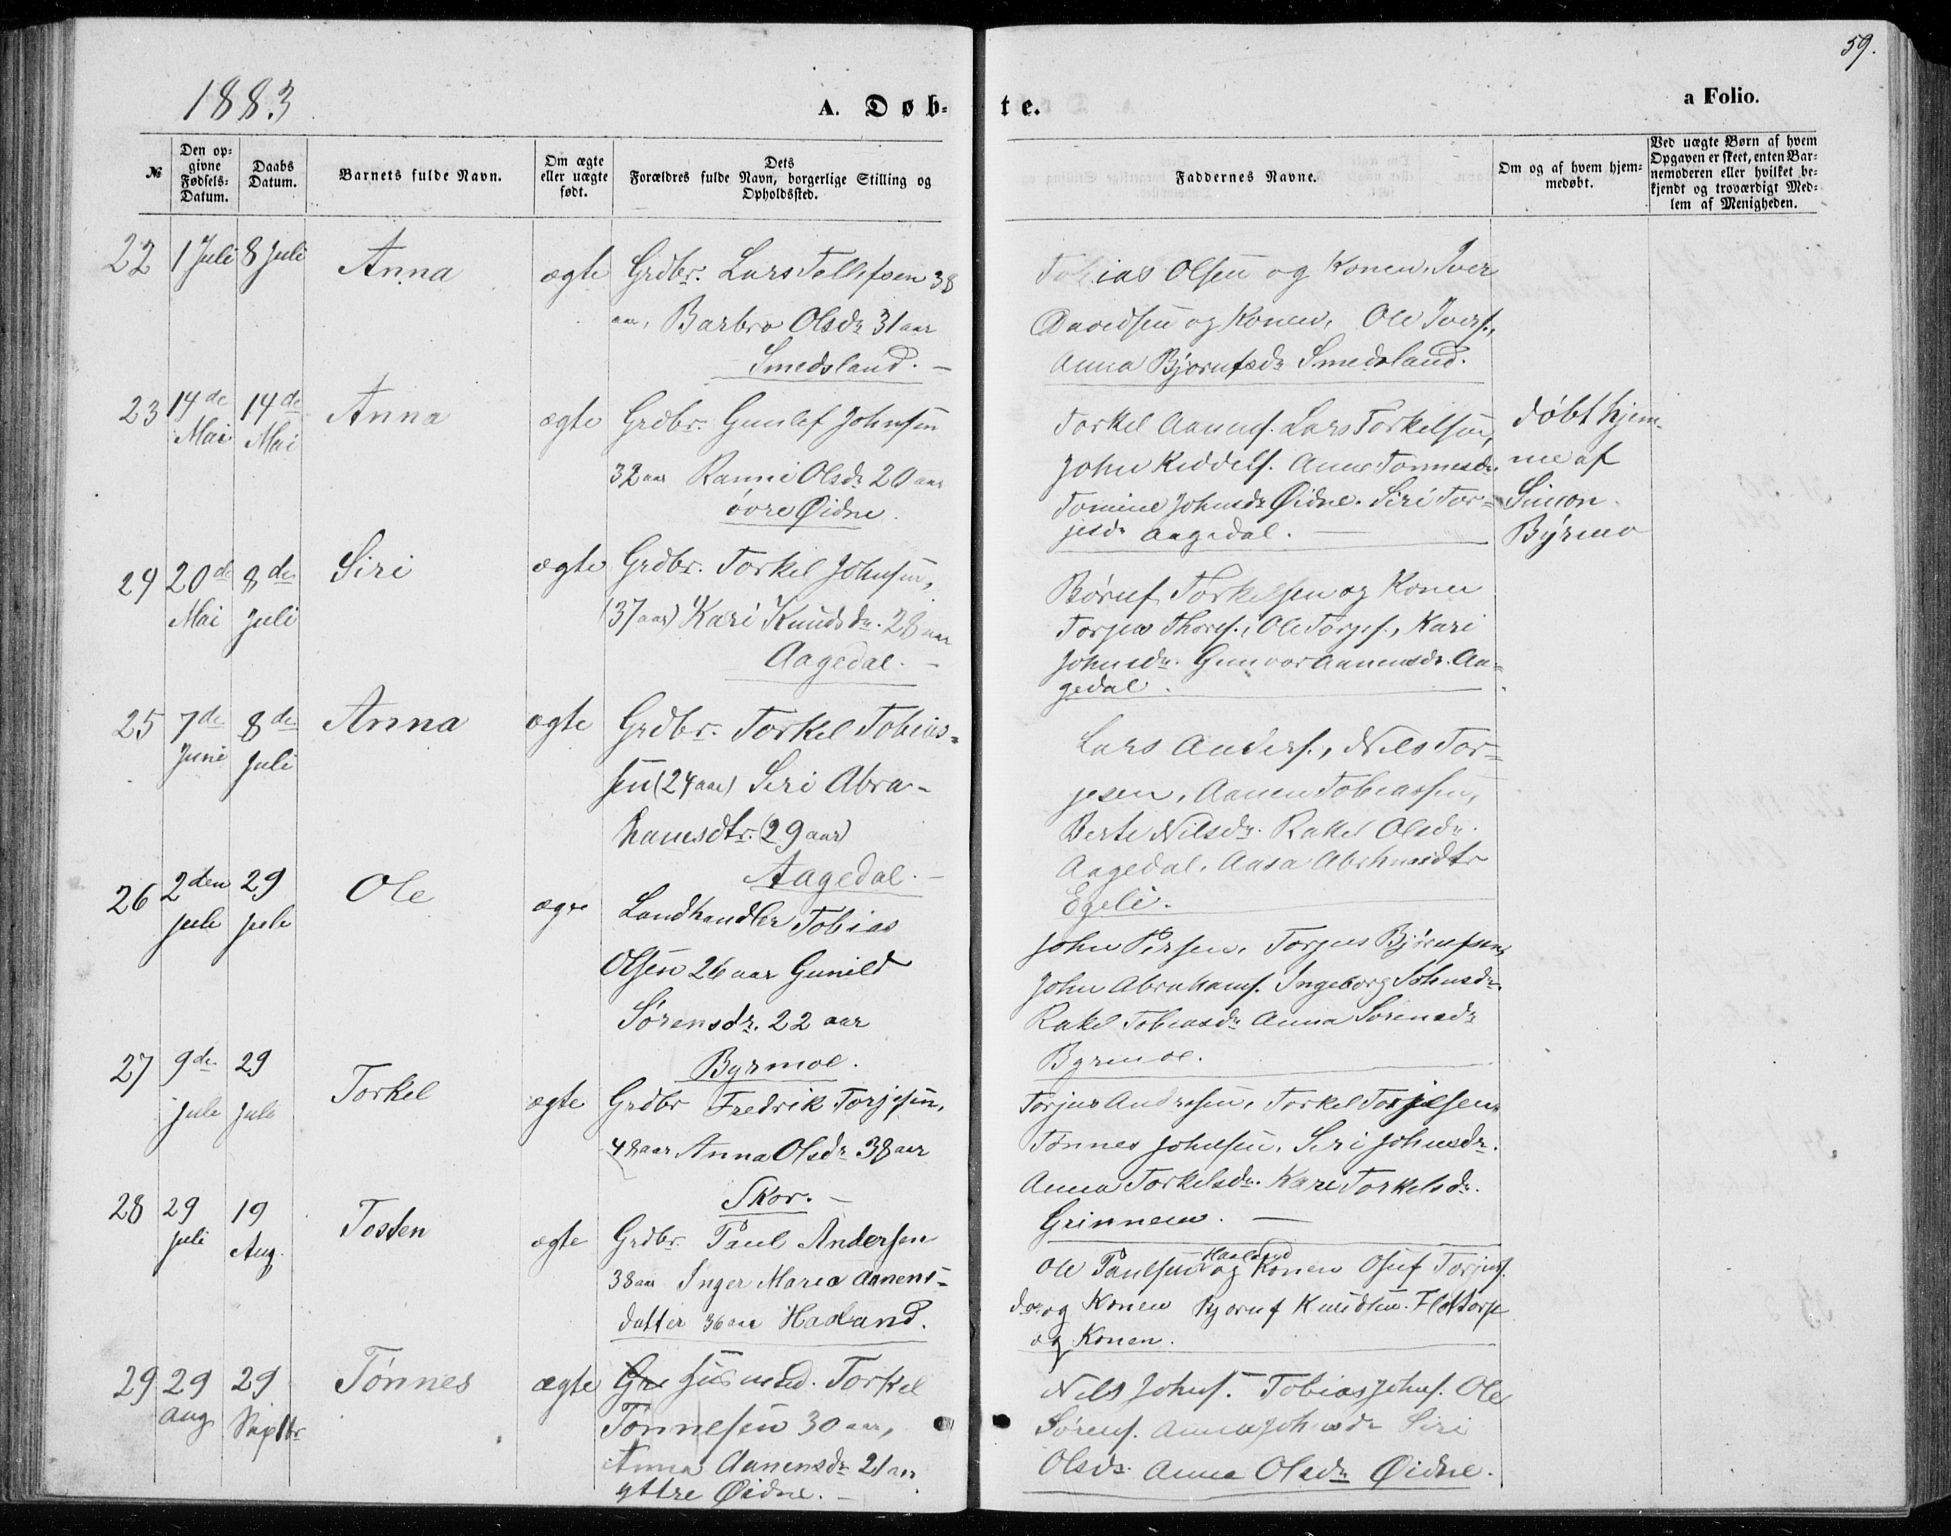 59.
1883
A. Døb-
te.
a Folio.
№
Den op-
givne
Fødsels-
Datum.
Daabs
Datum.
Barnets fulde Navn.
Om ægte
eller uægte
født.
Dets
Forældres fulde Navn, borgerlige Stilling og
Opholdssted.
Faddernes Navne.
Om og af hvem hjem-
medøbt.
Ved uægte Børn af hvem
Opgaven er skeet, enten Bar-
nemoderen eller hvilket be-
kjendt og troværdigt Med-
lem af Menigheden.
22 1 Juli 8 Juli Anna ægte Grdbr. Lars Tellefsen 38
aar, Barbro Olsdr 31 aar
Smedsland. –
Tobias Olsen og Konen, Iver
Davidsen og Konen, Ole Ivers.,
Anna Bjørnfsdr Smedsland.
23 14de Mai 14de Mai Anna ægte Grdbr. Gunlef Johnsen
32 aar Ranni Olsdr 20 aar
øvre Øidne.
Torkel Aanens. Lars Torkelsen,
John Keddels. Anne Tønnesdr
Tomine Johnsdr Øidne. Siri Tor-
jesdr Aagedal. –
døbt hjem-
me af
Simon
Byrmo
24 20de Mai 8de Juli Siri ægte Grdbr. Torkel Johnsen,
(37 aar) Kari Knudsdr. 28 aar
Aagedal. –
Børuf Torkelsen og Konen
Torjus Thores., Ole Torjes., Kari
Johnsdr. Gunvor Aanensdr. Aa-
gedal.
25 7de Juni 8de Juli Anna ægte Grdbr. Torkel Tobias-
sen (24 aar) Siri Abra-
hamsdtr. (29 aar)
Aagedal. –
Lars Anders., Nils Tor-
jesen, Aanen Tobiassen,
Berte Nilsdr. Rakel Olsdr.
Aagedal, Aasa Abrhmsdtr
Egeli.
26 2den juli 29 juli Ole ægte Landhandler Tobias
Olsen 26 aar Gunild
Sørensdr. 22 aar
Byrmoe.
John Persen, Torjus Bjørnfsen,
John Abrahams. Ingeborg Johnsdr
Rakel Tobiasdr Anna Sørensdr
Byrmoe.
27 9de juli 29 juli Torkel ægte Grdbr Fredrik Torjesen,
48 aar Anna Olsdr 38 aar
Skor. –
Torjus Andresen, Torkel Torjesen,
Tønnes Johnsen, Siri Johnsdr.
Anna Torkelsdr. Kari Torkelsdr.
Grinnem. –
28 29 juli 19 Aug. Tosten ægte Grdbr. Paul Andersen
38 aar Inger Maria Aanens-
datter 36 aar Haaland.
Haaland
Ole Paulsen og Konen Osuf Torjus.
do og Konen Bjørnf Knudsen Flottorp
og Konen.
29 29 aug 29 Septbr Tønnes ægte Gr Husmd. Torkel
Tønnesen 30 aar,
Anna Aanensdr 21 aar
yttre Øidne. –
Nils Johns. Tobias Johns. Ole
Sørens. Anna Johnsdr Siri
Olsdr. Anne Olsdr Øidne.